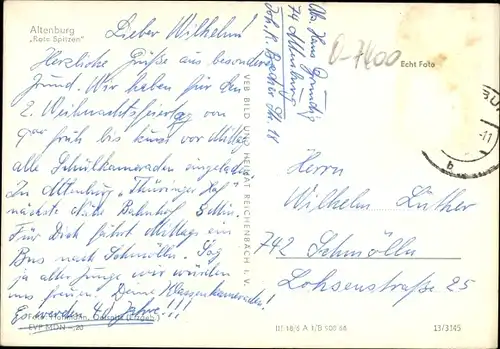 Altenburg
„Rote Spitzen"
Lieber Wilhelm!
Herzliche Grüße aus besonderem
Grund. Wir haben für den
2. Weihnachtsfeiertag von
9 früh bis kurz vor Mittag
alle Schulkameraden eingeladen
In Altenburg „Thüringer Hof"
nächste Nähe Bahnhof.
Für Dich fährt Mittags ein
Bus nach Schmölln. Sag
ja alter Junge wir würden
uns freuen. Deine Klassenkameraden!
Es werden 40 Jahre!!!
EVP MDN -,20
VEB BILD UND HEIMAT REICHENBACH I. V.
Abs. Hans Grundig
74 Altenburg
Joh. R. Becher Str. 18
O-7400
Echt Foto
Herrn
Wilhelm Lüther
742 Schmölln
Lohsenstraße 25
III 18/6 A 1/B 500 66
13/3145